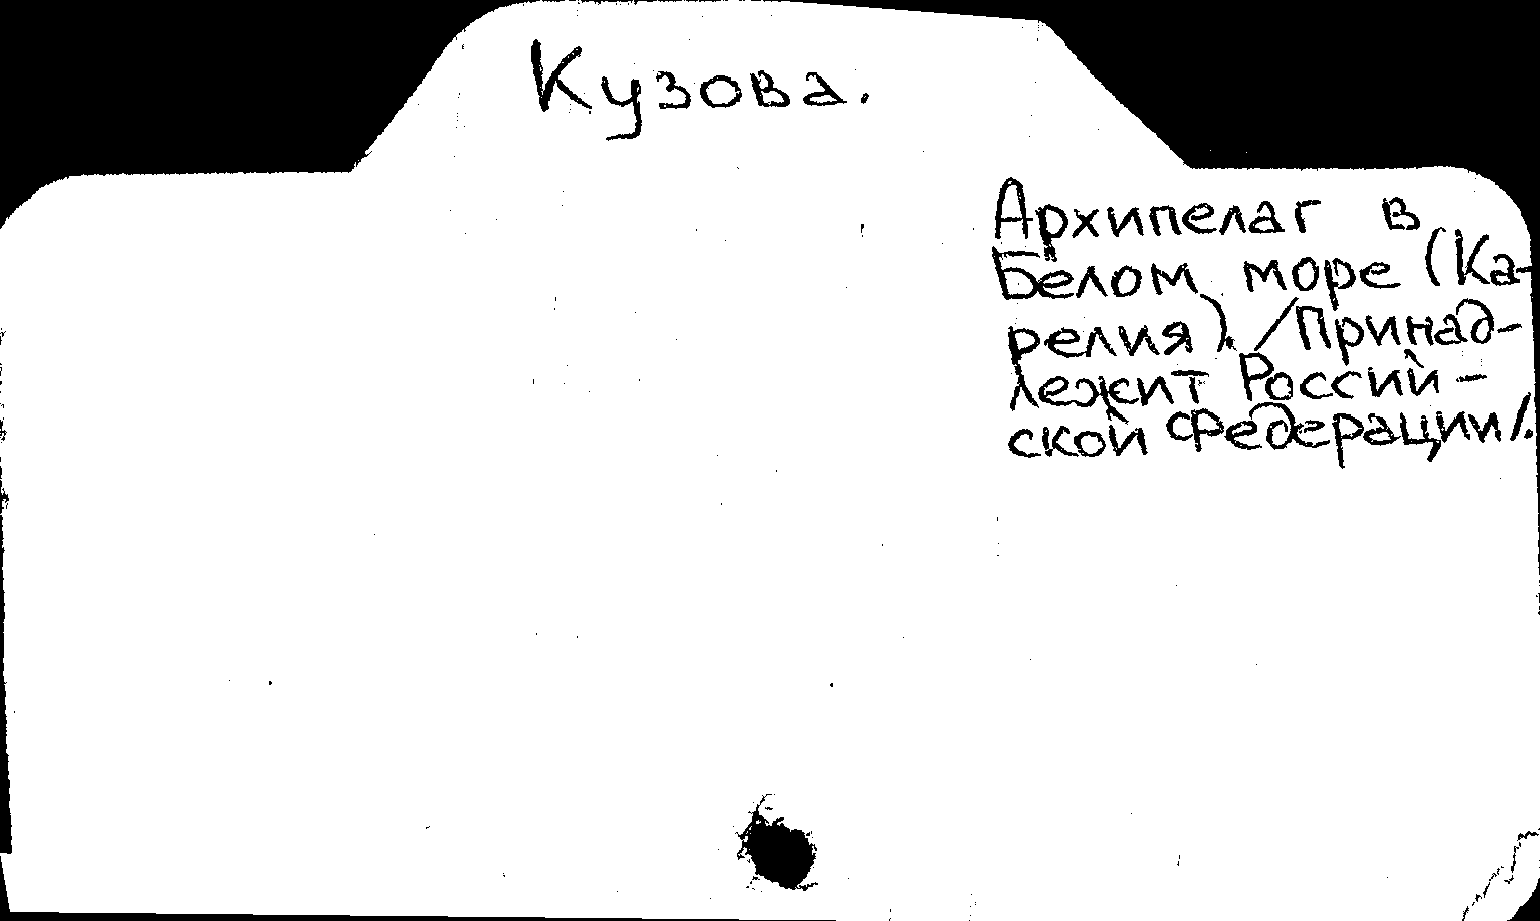 Кузова.
Архипелаг в
Белом море (Ка-
релия). /Принад-
лежит Россий-
ской Федерации/.